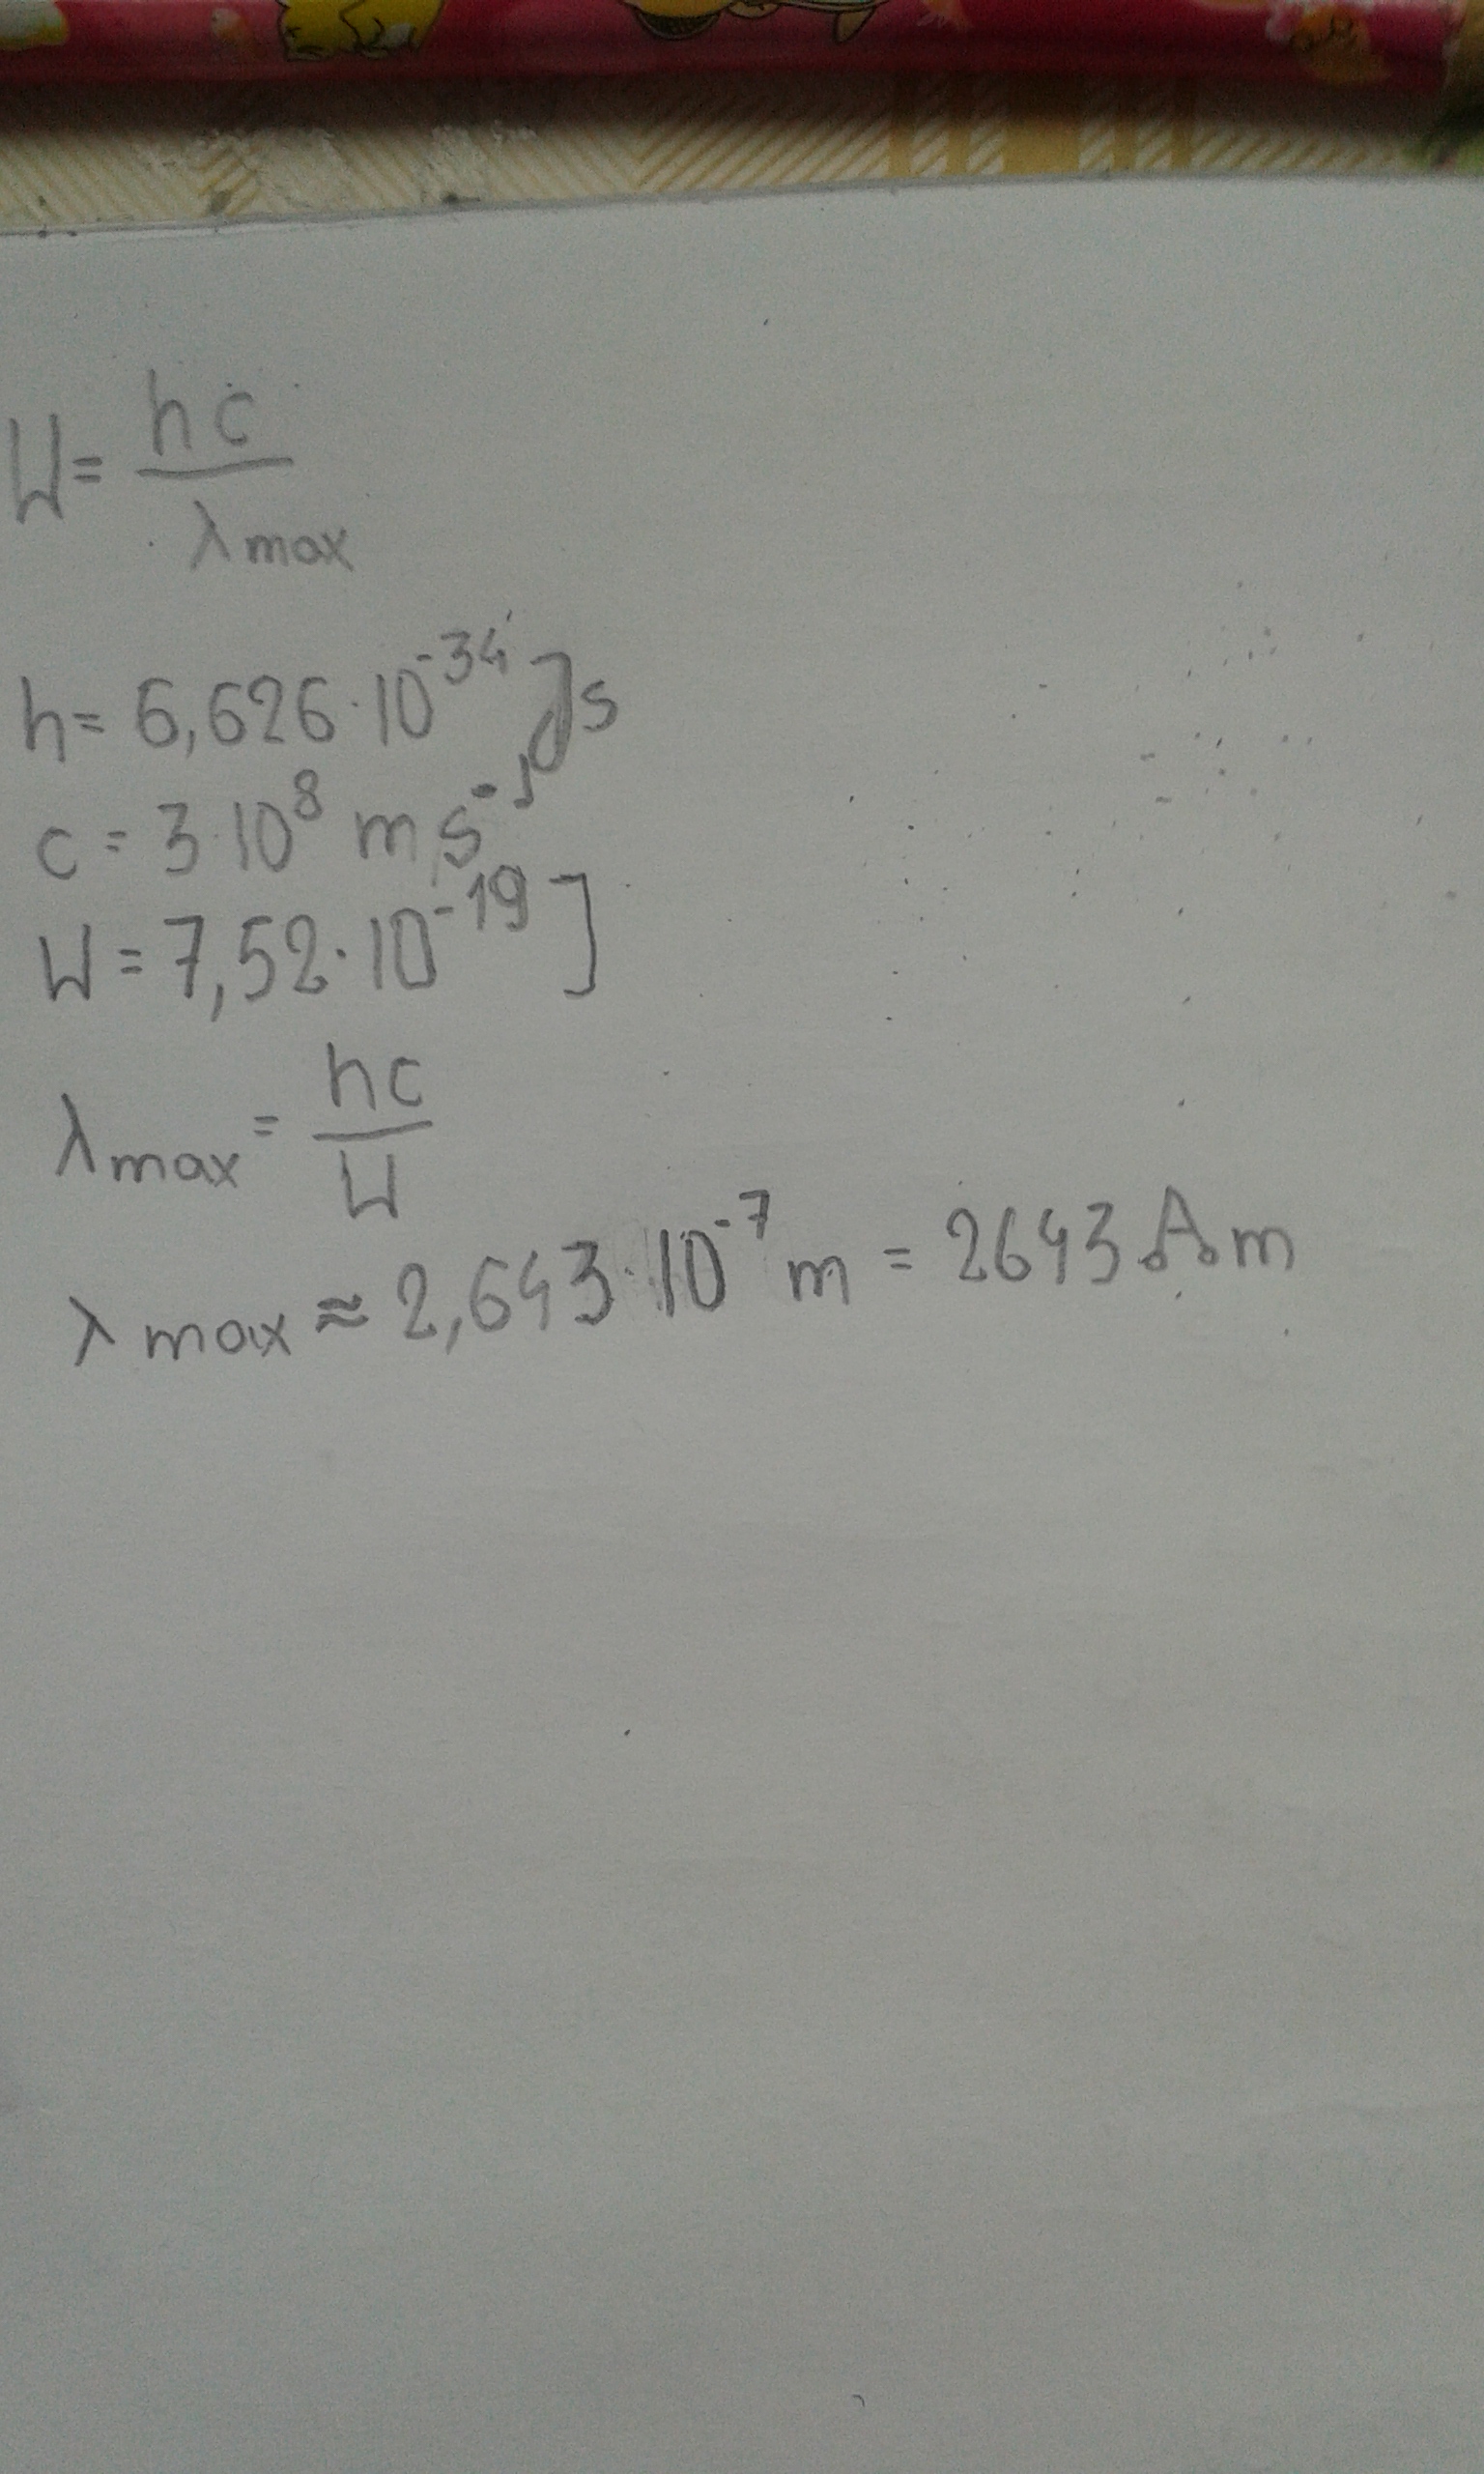 W = hc / λmax
h = 6,626·10^-34 Js
c = 3·10^8 m s^-1
W = 7,52·10^-19 J
λmax = hc / W
λmax ≈ 2,643·10^-7 m = 2643 Åm